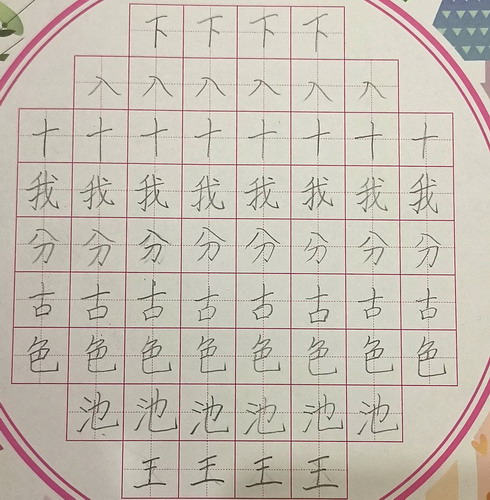 下下下下
入入入入入入
十十十十十十十十
我我我我我我我我
分分分分分分分分
古古古古古古古古
色色色色色色色色
池池池池池池
王王王王